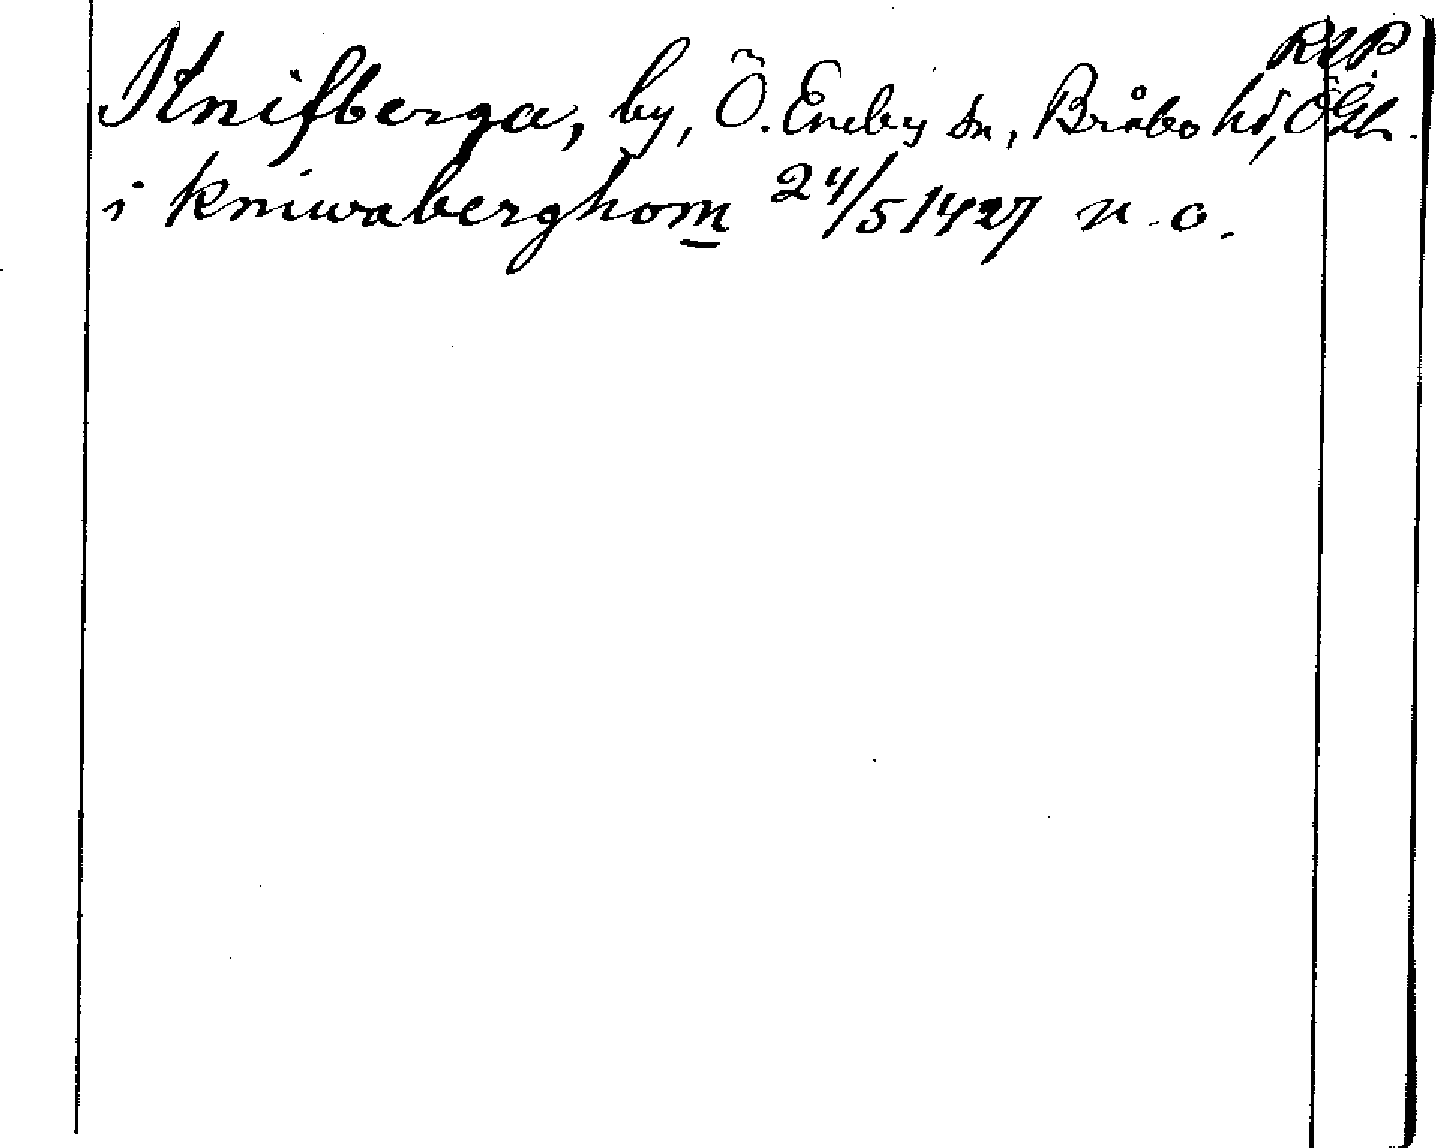 RAP
Knifberga, by, Ö. Eneby sn, Bråbo hd, ÖGL.
i kniwaberghom 24/5 1427 n. o.